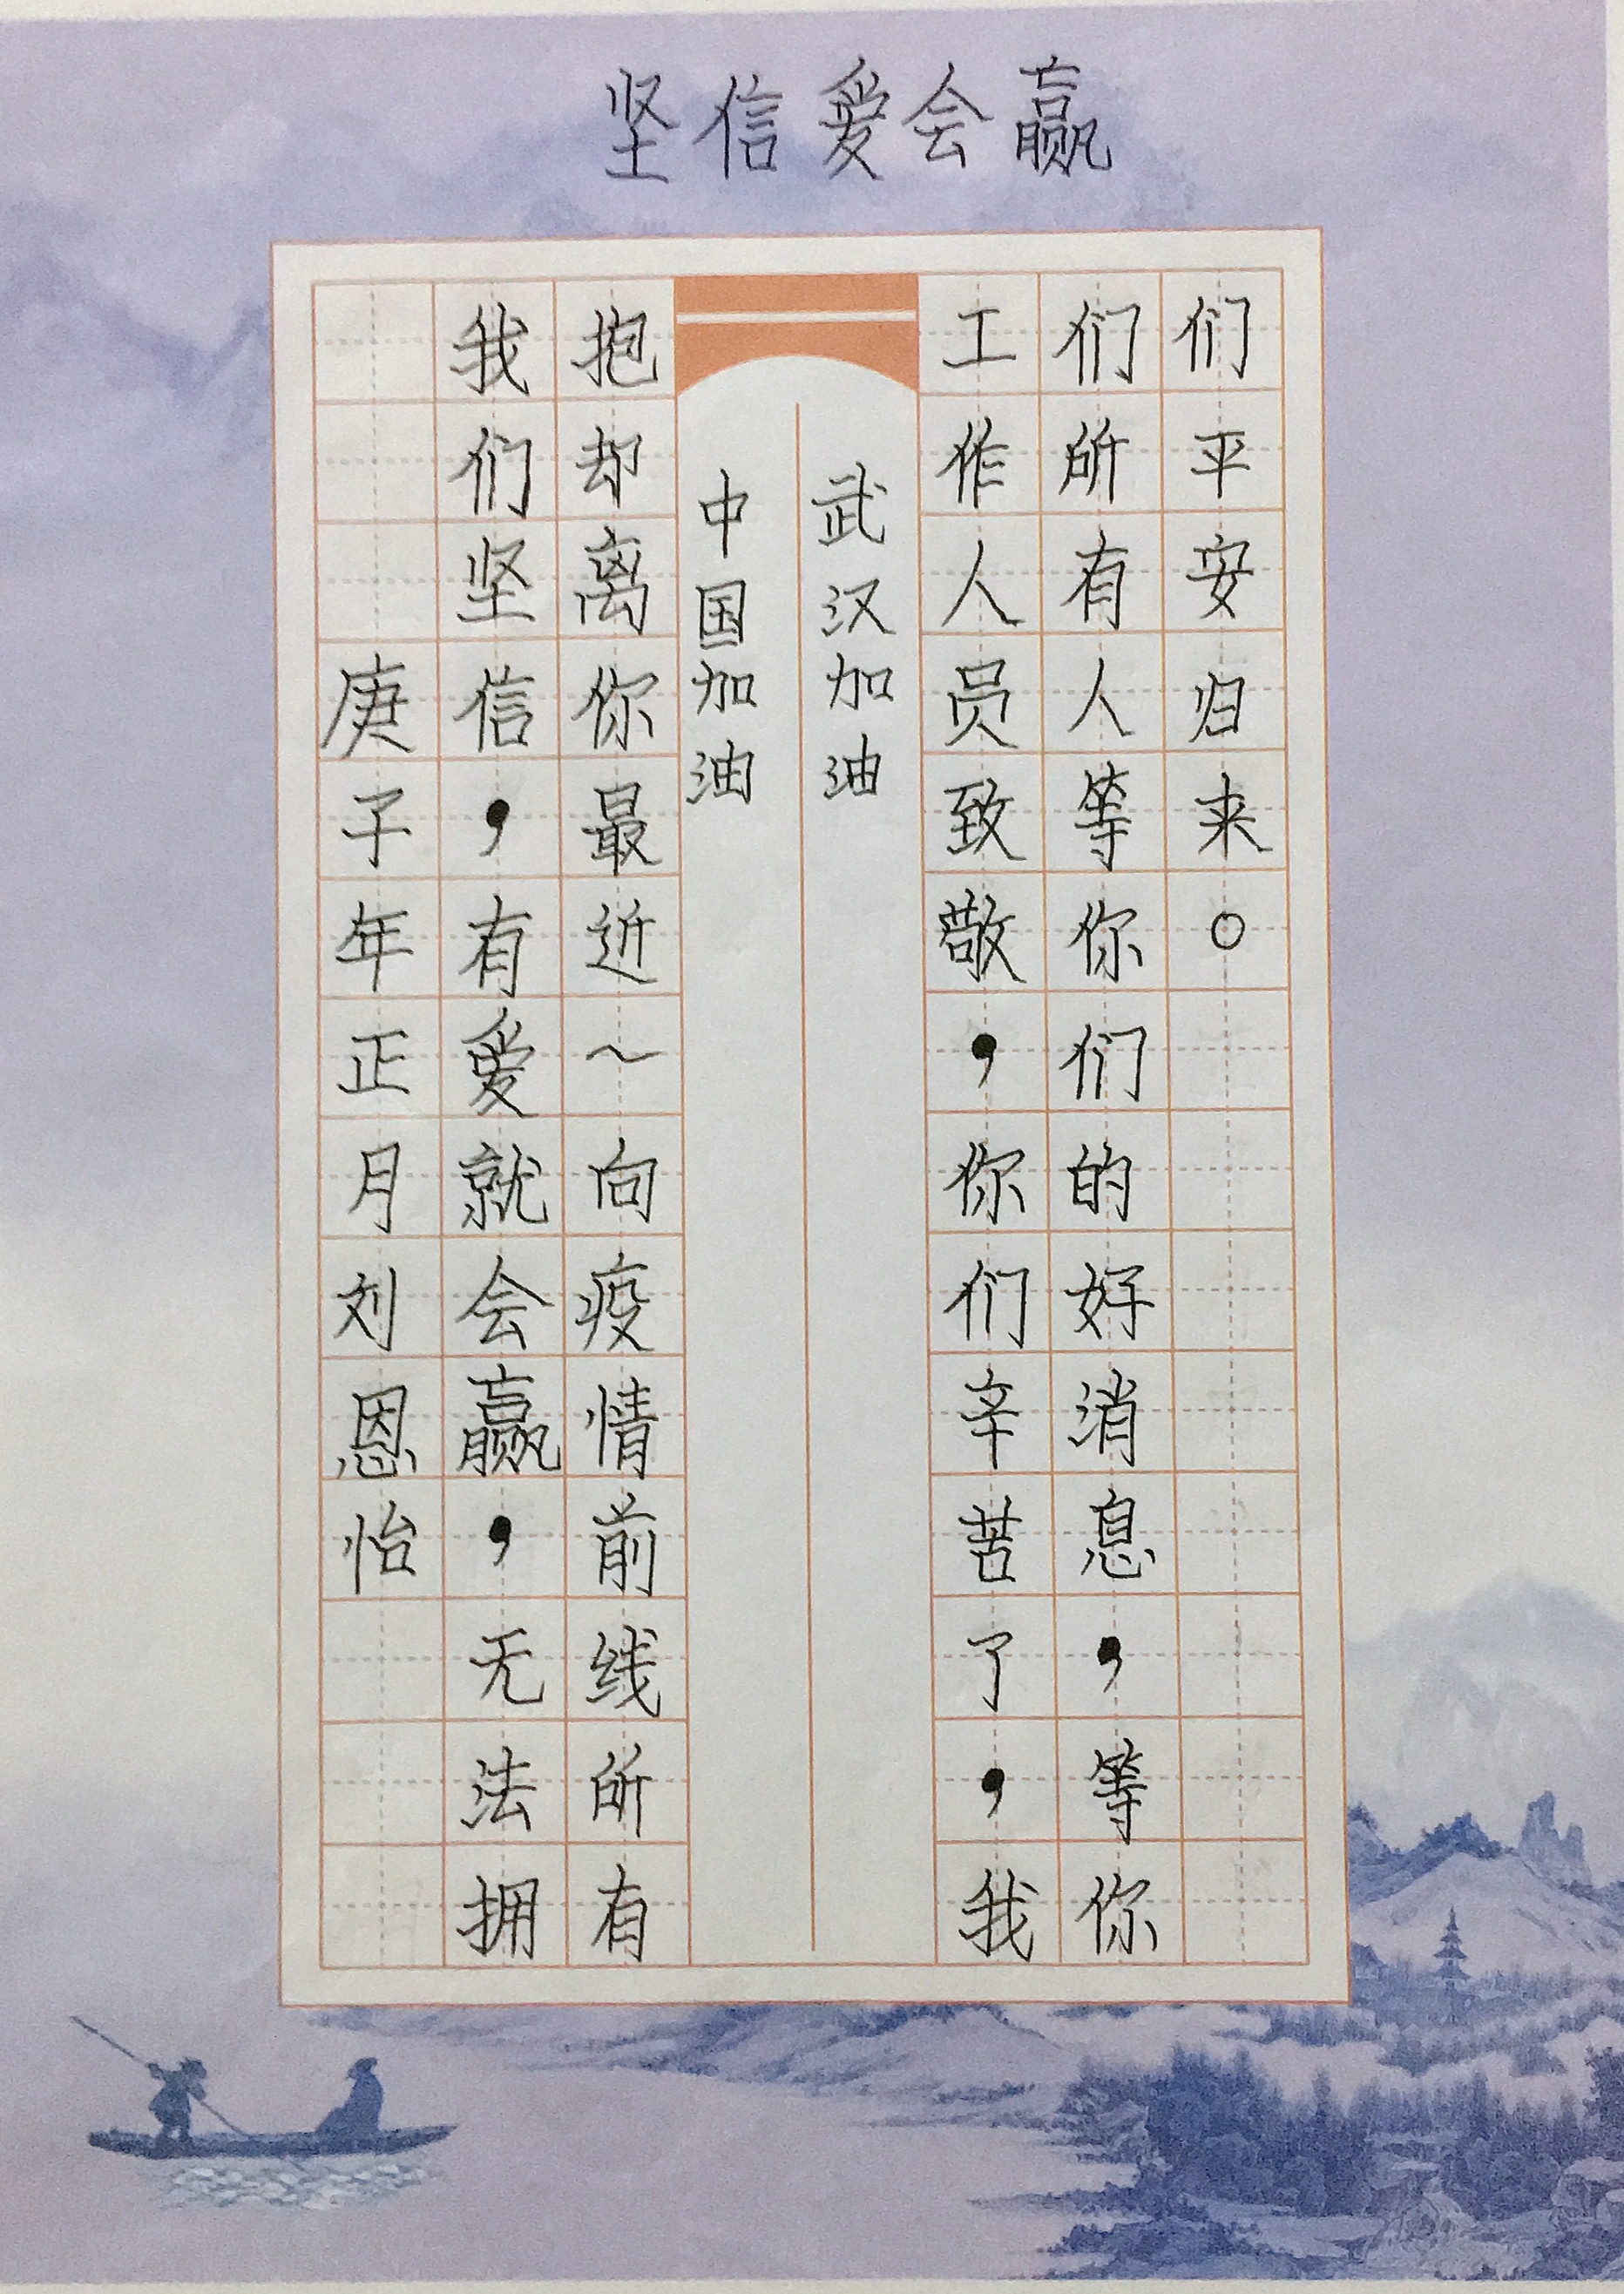 坚信爱会赢
庚子年正月刘恩怡
我们坚信，有爱就会赢，无法拥
抱却离你最近～向疫情前线所有
中国加油
武汉加油
工作人员致敬，你们辛苦了，我
们所有人等你们的好消息，等你
们平安归来。